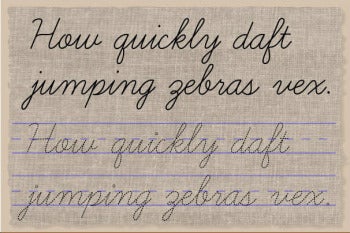 How quickly daft
jumping zebras vex.
How quickly daft
jumping zebras vex.